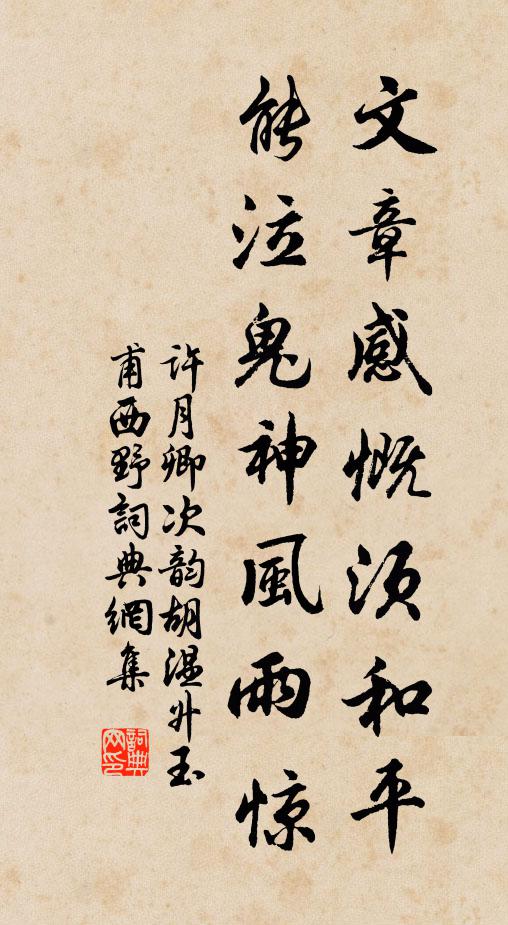 文章感慨须和平
能泣鬼神風雨惊
许月卿次韵胡温升玉
甫西野詞典網集
詞典
网印